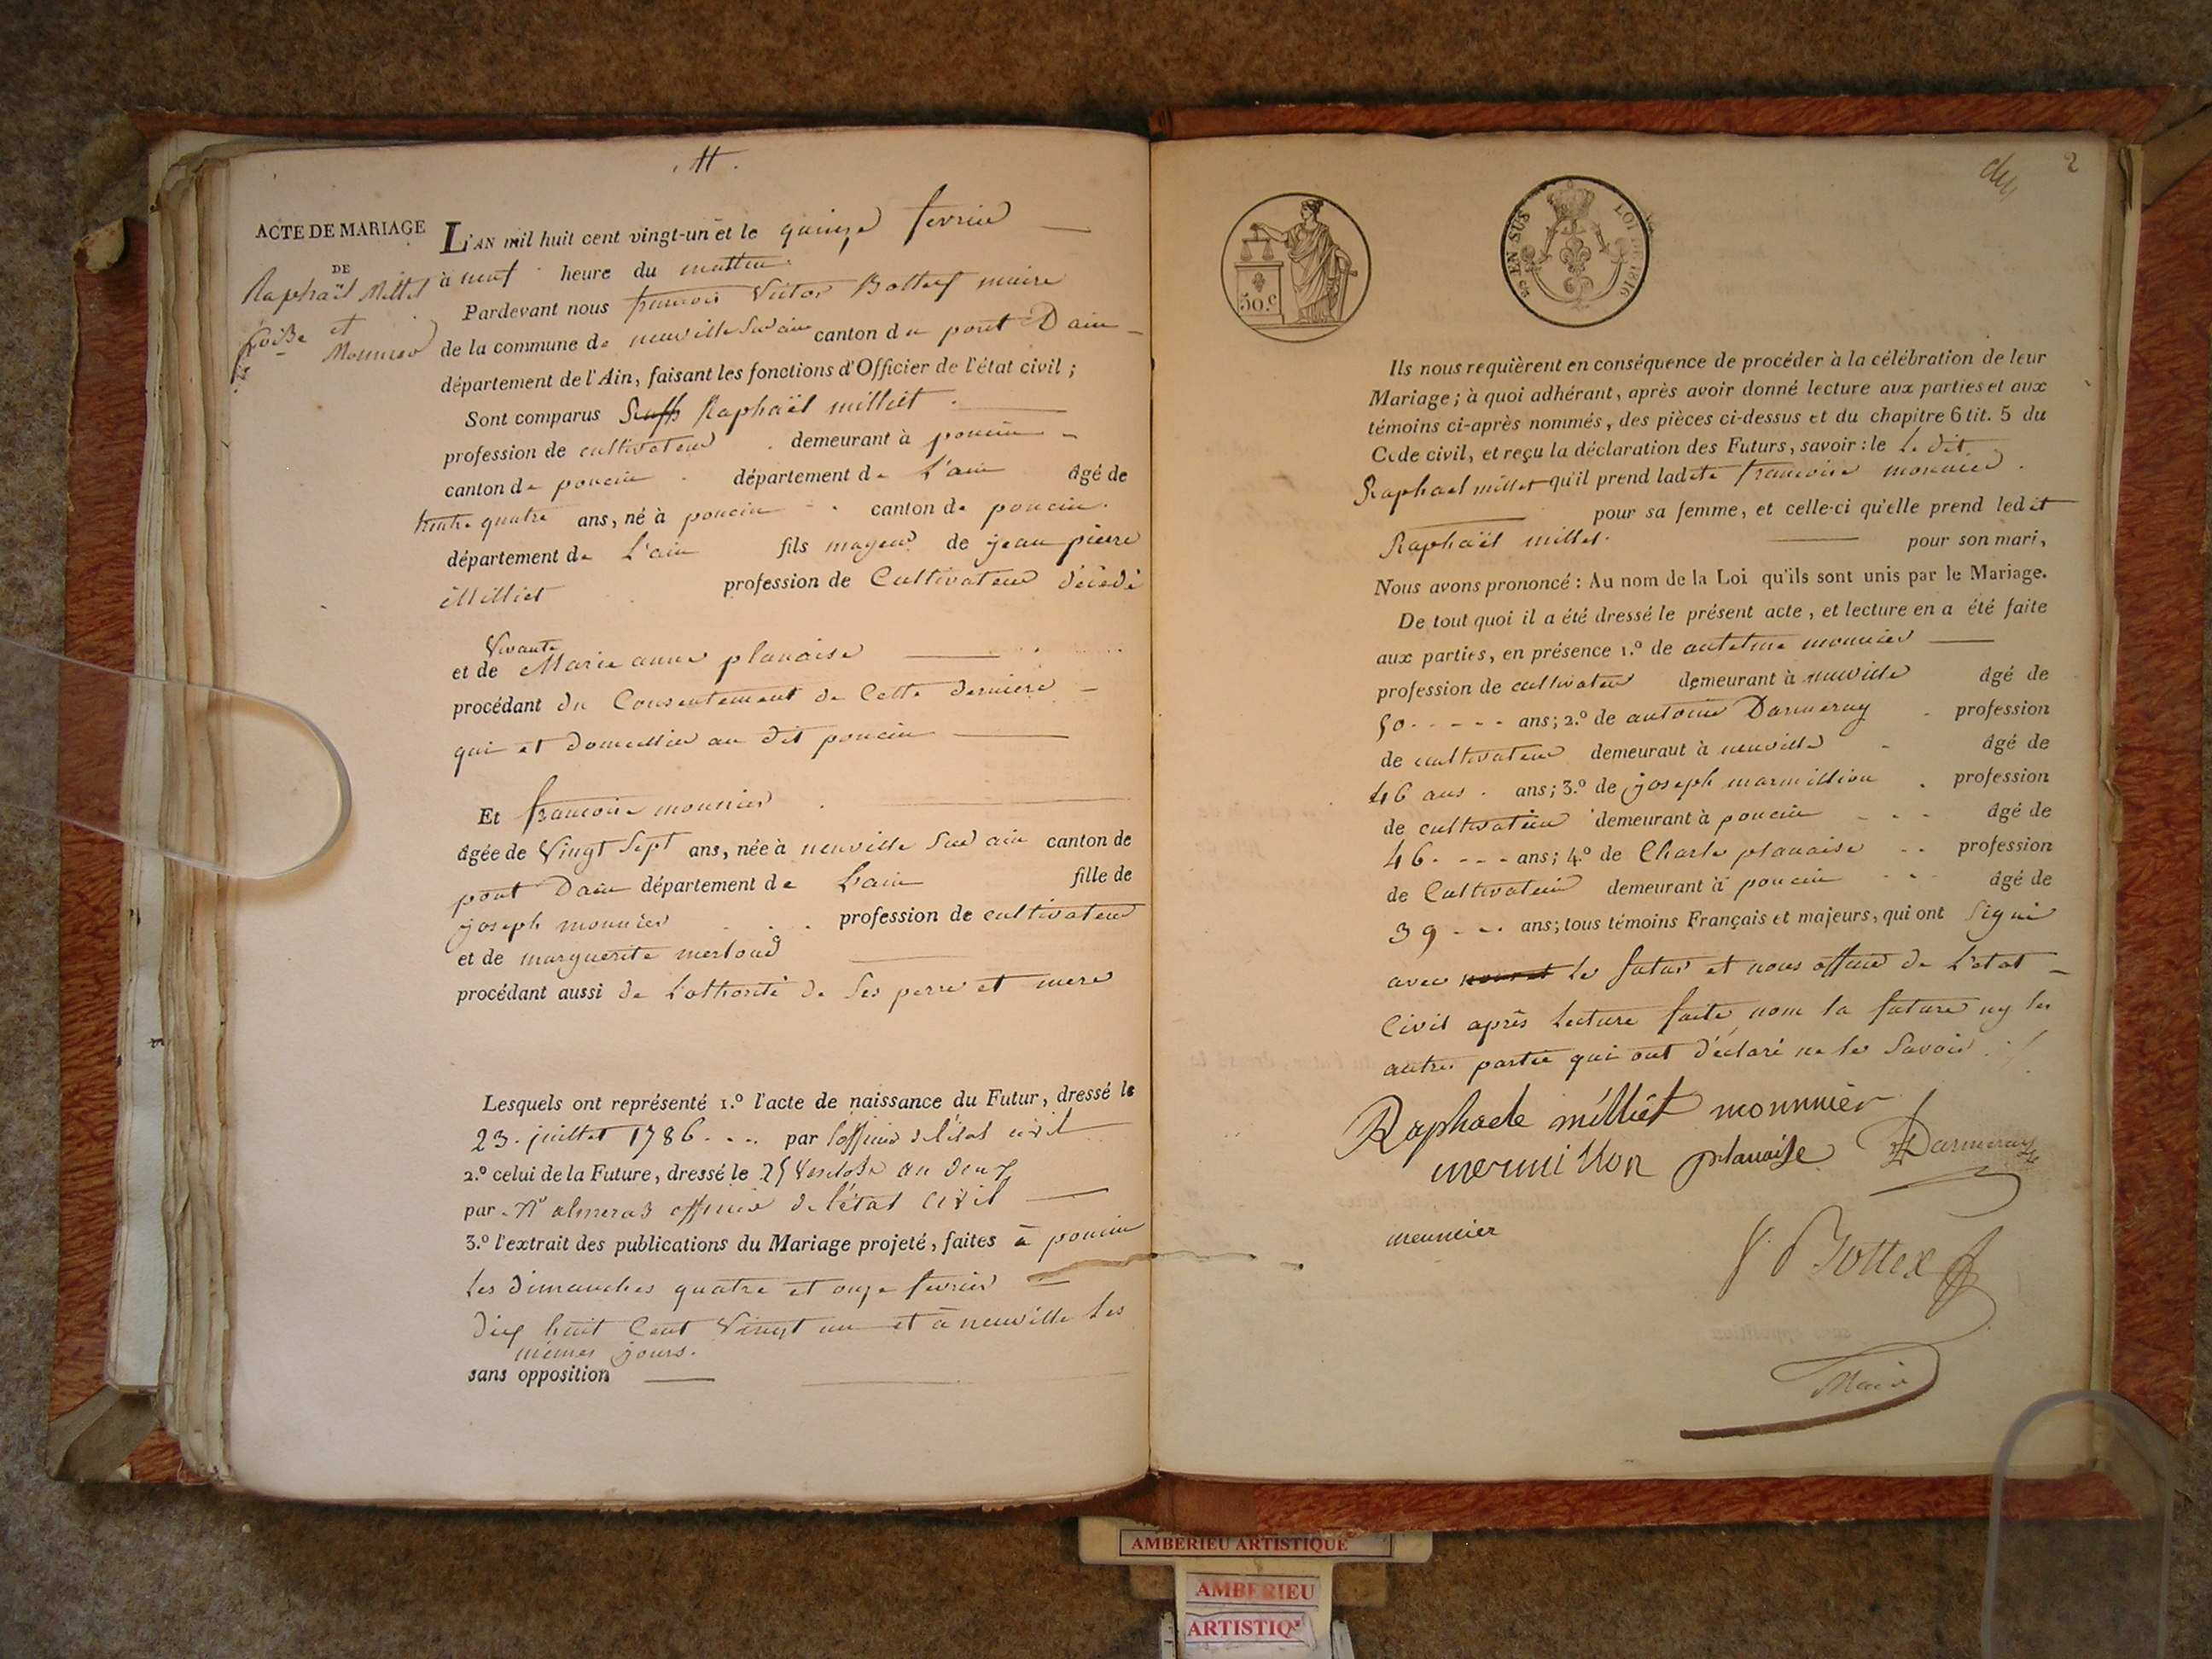 11.
ACTE DE MARIAGE
DE
Raphaël Millet
et
Monnier
L'AN mil huit cent vingt-un et le quinze fevrier
à neuf heure du mattin
Pardevant nous francois Victor Bottex maire
de la commune de neuville sur ain canton du pont Dain
département de l'Ain, faisant les fonctions d'Officier de l'état civil ;
Sont comparus Raphaël milliet
profession de cultivateur demeurant à poncin
canton de poncin département de L'ain âgé de
trente quatre ans, né à poncin canton de poncin
département de L'ain fils mageur de jean pierre
Milliet profession de Cultivateur décédé
Vivante
et de Marie anne planaise
procédant du Consentement de Cette derniere
qui et domicilié au dit poncin
Et francoise monnier
âgée de Vingt Sept ans, née à neuville Sur ain canton de
pont Dain département de L'ain fille de
joseph monnier profession de cultivateur
et de marguerite merloud
procédant aussi de Lothorité de Ses perre et mere
Lesquels ont représenté 1.º l'acte de naissance du Futur, dressé le
23 juillet 1786 par l'officier de l'état civil
2.º celui de la Future, dressé le 25 Ventose an deux
par Mr almeras officier de l'état Civil
3.º l'extrait des publications du Mariage projeté, faites à poncin
Les dimanches quatre et onze fevrier
dix huit Cent Vingt un et à neuville Les
mêmes jours.
sans opposition
2
50 c
EN SUS
LOI DE 1816
Ils nous requièrent en conséquence de procéder à la célébration de leur
Mariage ; à quoi adhérant, après avoir donné lecture aux parties et aux
témoins ci-après nommés, des pièces ci-dessus et du chapitre 6 tit. 5 du
Code civil, et reçu la déclaration des Futurs, savoir : le Le dit
Raphael millet qu'il prend ladite francoise monnier
pour sa femme, et celle-ci qu'elle prend ledit
Raphaël millet. pour son mari,
Nous avons prononcé : Au nom de la Loi qu'ils sont unis par le Mariage.
De tout quoi il a été dressé le présent acte, et lecture en a été faite
aux parties, en présence 1.º de antelme monnier
profession de cultivateur demeurant à neuville âgé de
50 ans ; 2.º de antoine Darmeray profession
de cultivateur demeuraut à neuville âgé de
46 ans ans ; 3.º de joseph marmillion profession
de cultivateur demeurant à poncin âgé de
46 ans ; 4.º de Charle planaise profession
de Cultivateur demeurant à poncin âgé de
39 ans ; tous témoins Français et majeurs, qui ont Signé
avec le futur et nous officier de L'etat
Civil après Lecture faite nom la future ny les
autres partie qui ont déclaré ne le Savoir
Raphaele milliet monnnier
mermillon planaise Darmeray
meunnier
V. Bottex
Maire
AMBERIEU ARTISTIQUE
AMBERIEU
ARTISTIQ